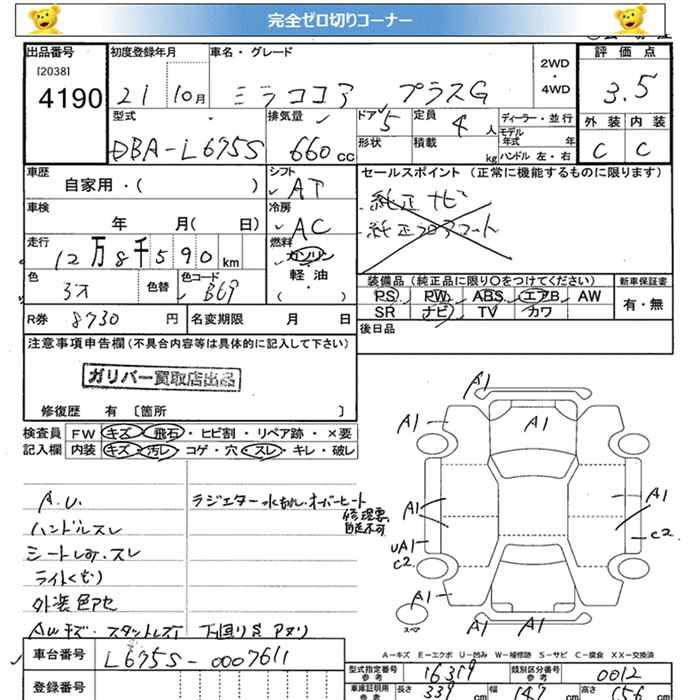 完全ゼロ切りコーナー
出品番号 初度登録年月 車名・グレード 2WD・4WD 評価点
[2038]
4190 21 10月 ミラココア プラスG 3.5
型式 排気量 ドア 定員 ディーラー・並行 外装 内装
DBA-L675S 660cc 5 4人 モデル年式 年 C C
形状 積載 kg ハンドル 左・右
車歴 シフト セールスポイント (正常に機能するものに限ります)
自家用・( ) AT 純正ナビ
車検 冷房 純正フロアマット
年 月( 日) AC
走行 燃料
12万8千590km ガソリン
色 色替 色コード 軽油 装備品(純正品に限り○をつけてください) 新車保証書
B69 ( ・ ) PS PW ABS エアB AW 有・無
R券 8730円 名変期限 月 日 SR ナビ TV カワ
後日品
注意事項申告欄(不具合内容等は具体的に記入して下さい)
ガリバー買取店出品
修復歴 有 〔箇所 〕
検査員 FW キズ・飛石・ヒビ割・リペア跡・×要
記入欄 内装 キズ・汚レ・コゲ・穴・スレ・キレ・破レ
A1
A1 A1
A.U. ラジエター水もれ、オーバーヒート
修理要
自走不可
ハンドルスレ
シートしみ、スレ
ライトくもり
外装色アセ
AWキズ・スタッドレス 下回りサビ
A1 A1
UA1 C2
C2
A1
スペア A1 A1
A-キズ E-エクボ U-凹み W-補修跡 S-サビ C-腐食 XX-交換済
車台番号 L675S-0007611 型式指定番号 参考 16319 類別区分番号 参考 0012
登録番号 車庫証明用 参考 長さ 339cm 幅 147cm 高さ 156cm